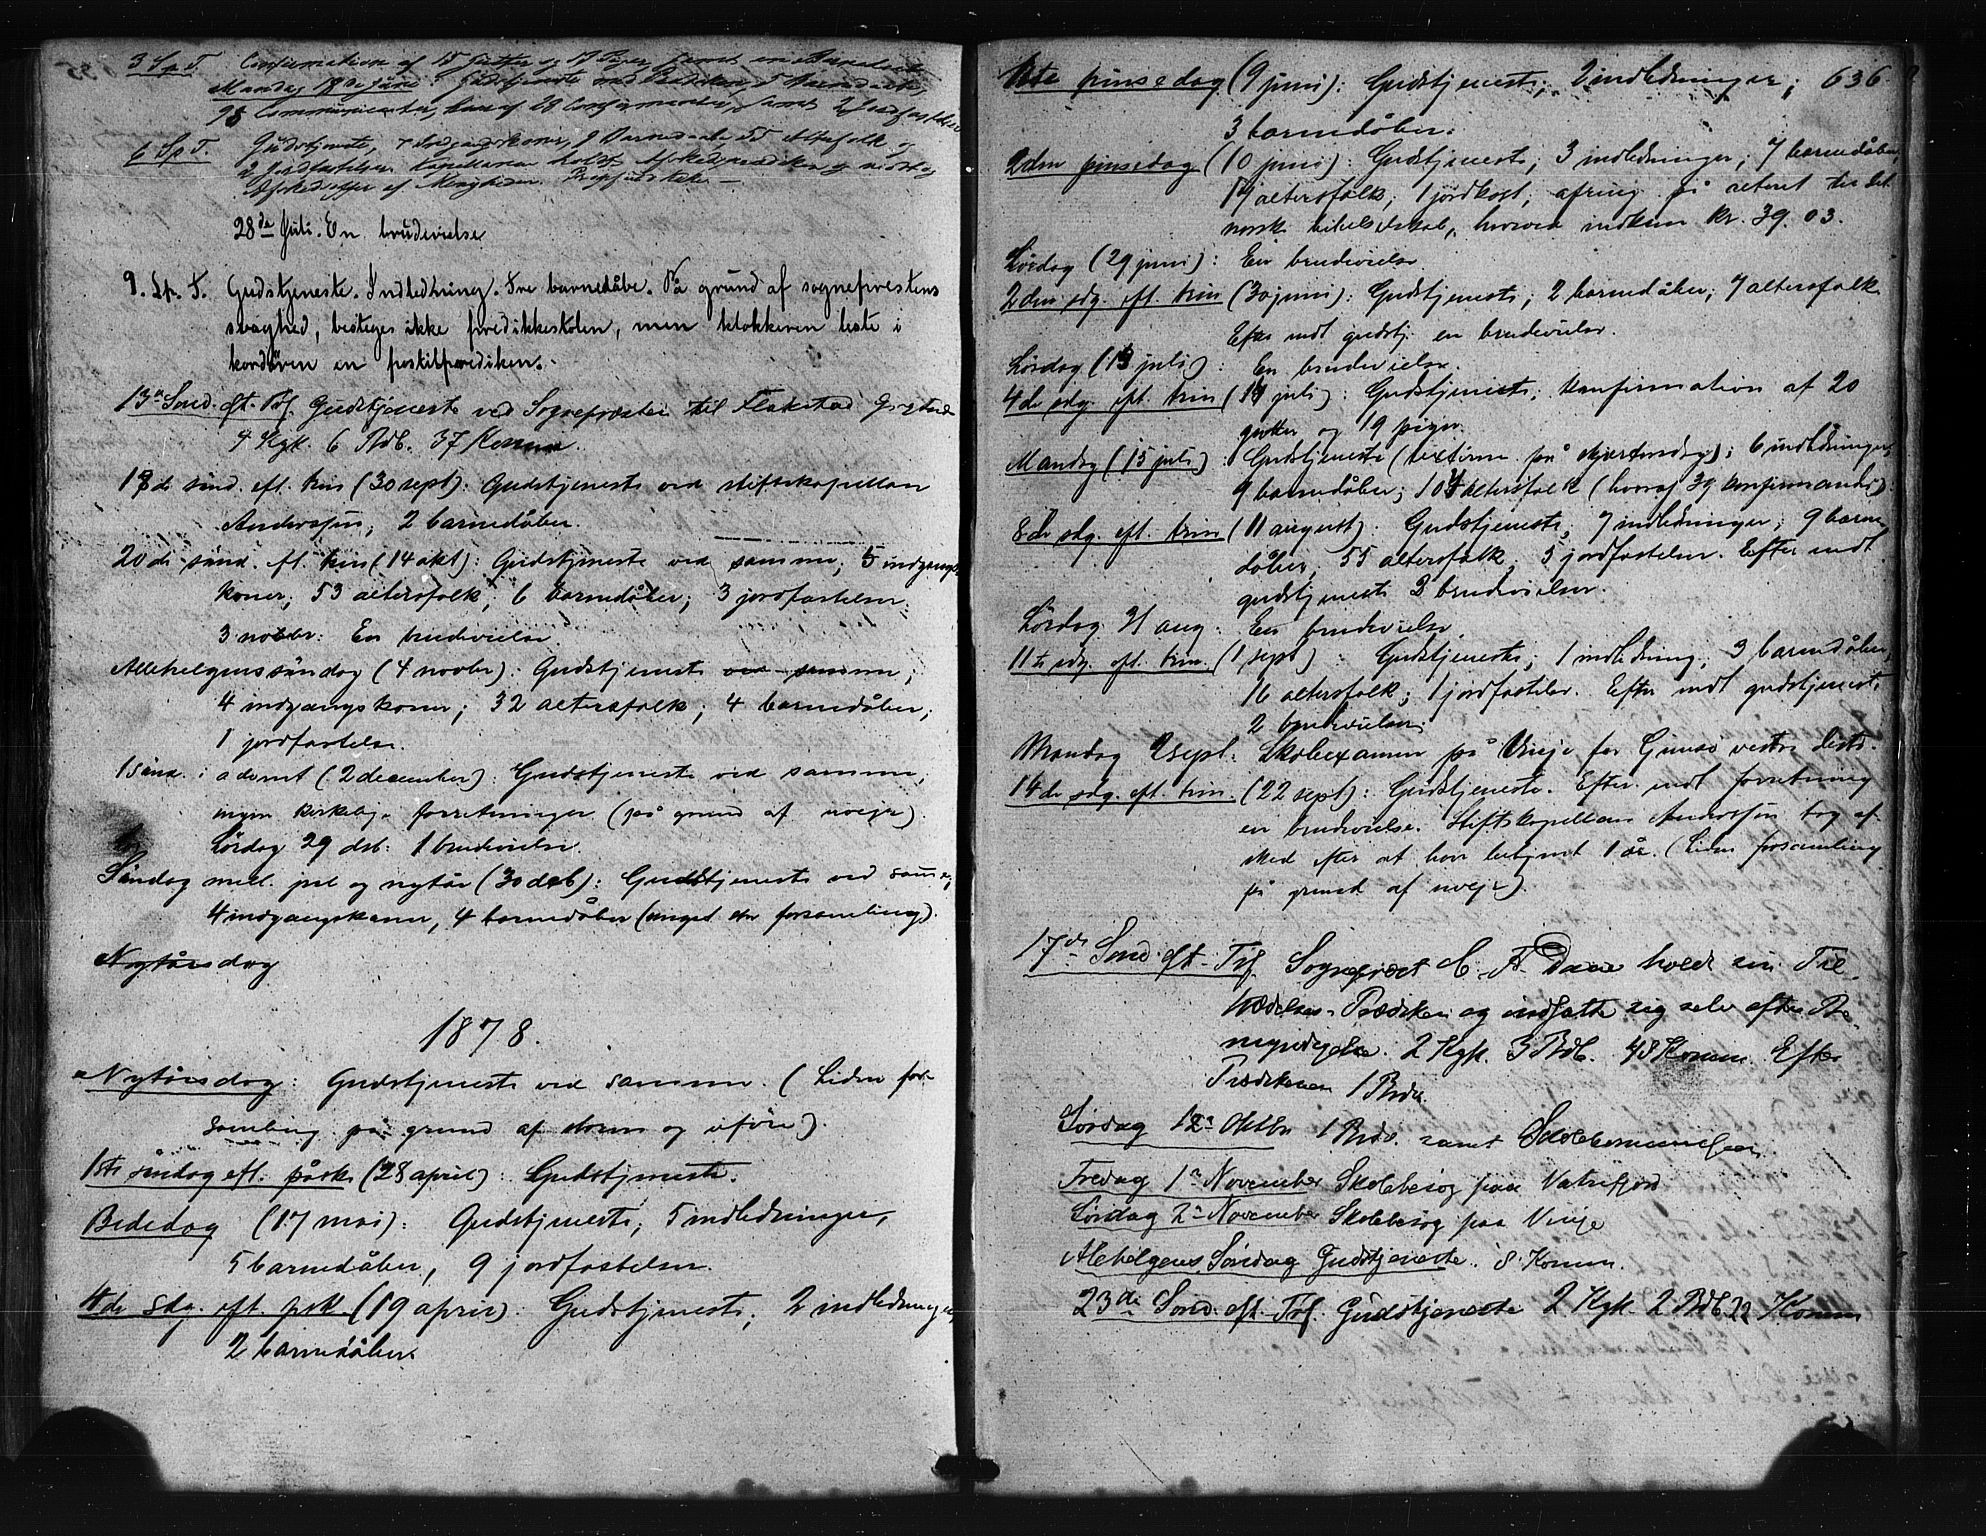 3 S. p. T. Confirmation af 15 Gutter og 17 Piger, samt en Barnedaab
Mandag 18de Juni. Gudstjeneste med Prædiken, 5 Barnedaab
98 Communicanter, heraf 28 Confirmanter, samt 2 Jordfæstelser
6 S. p. T. Gudstjeneste, 4 Indgangskoner, 9 Barnedaab, 55 Altefolk og
2 Jordfæstelser. Kapellanen holdt Afskedsprædiken og modtog
Afskedsoffer af Menigheden.
28de Juli. En brudevielse
9. S. p. T. Gudstjeneste. Indledning. Tre barnedåbe. På grund af sognepræstens
svaghed, bestiges ikke prædikestolen, men klokkeren læste i
kordøren en postilprædiken.
13de Sønd. eft. Trf. Gudstjeneste ved Sognepræsten til Flakstad
4 Kgk. 6 Bdb. 37 Komm.
18de sønd. eft. trin (30 sept): Gudstjeneste ved stiftskapellan
Anderssen; 2 barnedåber.
20de sønd. eft. trin (14 okt): Gudstjeneste ved samme; 5 indgangs-
koner; 53 altersfolk; 6 barnedåber; 3 jordfæstelser.
3 novbr: En brudevielse
Allehelgenssøndag (4 novbr): Gudstjeneste ved samme;
4 indgangskoner; 32 altersfolk; 4 barnedåber;
1 jordfæstelse.
1 sønd. i advent (2 december): Gudstjeneste ved samme;
ingen kirkelige forretninger (på grund af uveir).
Lørdag 29 dsb: 1 brudevielse.
Søndag mell. jul og nytår (30 dsb): Gudstjeneste ved samme;
4 indgangskoner, 4 barnedåber (meget stor forsamling).
Nytårsdag
1878.
Nytårsdag: Gudstjeneste ved samme. (Liden for-
samling på grund af storm og uføre).
1ste søndag eft. påske (28 april): Gudstjeneste.
Bededag (17 mai): Gudstjeneste; 5 indledninger,
5 barnedåber, 9 jordfæstelser.
4de sdg. eft. psk. (19 april): Gudstjeneste; 2 indledninger,
2 barnedåber.
1ste pinsedag (9 juni): Gudstjeneste; 2 indledninger; 636
3 barnedåber.
2den pinsedag (10 juni): Gudstjeneste; 3 indledninger; 7 barnedåber;
19 altersfolk; 1 jordkast; ofring på alteret til det
norske bibelselskab, hvorved indkom kr. 39.03.
Lørdag (29 juni): En brudevielse
2den sdg. eft. trin (30 juni): Gudstjeneste; 2 barnedåber; 7 altersfolk.
Efter endt gudstj. en brudevielse.
Lørdag (13 juli): En brudevielse.
4de sdg. eft. trin (14 juli): Gudstjeneste; Konfirmation af 20
gutter og 19 piger.
Mandag (15 juli): Gudstjeneste (texterne på skjærtorsdag); 6 indledninger;
9 barnedåber; 104 altersfolk (hvoraf 39 konfirmander).
8de sdg. eft. trin (11 august): Gudstjeneste; 7 indledninger; 9 barne-
dåber; 55 altersfolk; 5 jordfæstelser. Efter endt
gudstjeneste 3 brudevielser.
Lørdag 31 aug: En brudevielse
11te sdg. eft. trin. (1 sept): Gudstjeneste; 1 indledning; 3 barnedåber;
16 altersfolk; 1 jordfæstelse. Efter endt gudstjeneste
2 brudevielser.
Mandag 2 sept: Skoleexamen på Vinje for Gimsø vestre distr.
14de sdg. eft. trin. (22 sept): Gudstjeneste. Efter endt forretning
en brudevielse. Stiftskapellan Anderssen tog af-
sked efter at have betjent 1 år. (Liden forsamling
på grund af uveir).
17de Sønd. eft. Trf. Sognepræst C. F. Daae holdt sin Til-
trædelses-Prædiken og indsatte sig selv efter Be-
myndigelse. 2 Kgk. 3 Bdb. 43 Komm. Efter
Prædikenen 1 Brdv.
Lørdag 12te Oktbr 1 Brdv. samt Skolekommission
Fredag 1ste November Skolebesøg paa Vaterfjord
Lørdag 2den November Skolebesøg paa Vinje
Allehelgens Søndag Gudstjeneste. 8 Komm.
23de Sønd. eft. Trf. Gudstjeneste 2 Kgk 2 Bdb. 12 Komm